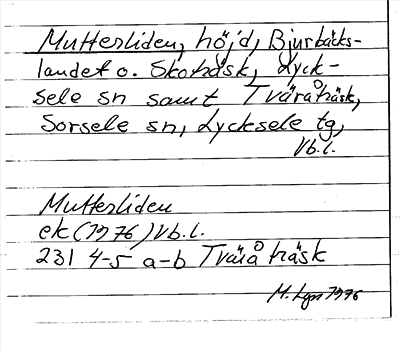 Mutterliden, höjd, Bjurbäcks-
landet o. Skoträsk, Lyck-
sele sn samt Tväråträsk,
Sorsele sn, Lycksele tg,
Vb.l.
Mutterliden
ek (1976) Vb.l.
231 4-5 a-b Tväråträsk
M. Lgn 1976